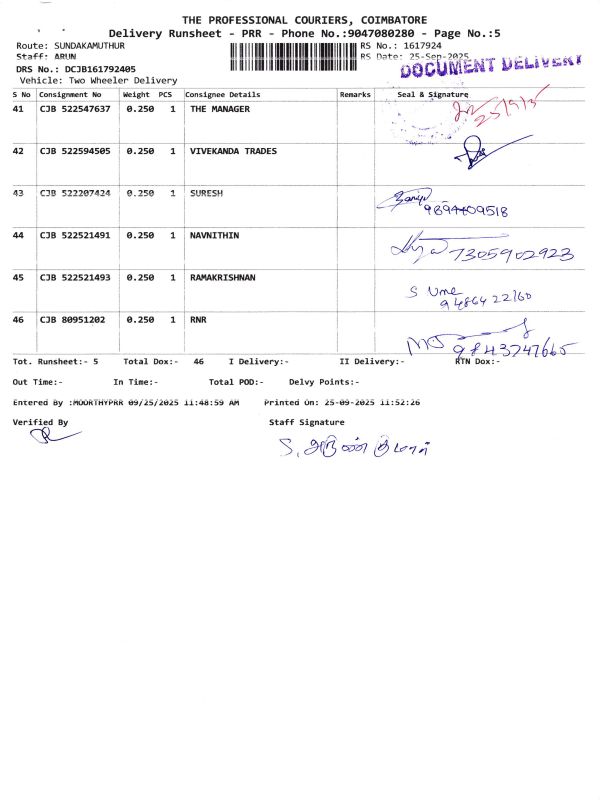 THE PROFESSIONAL COURIERS, COIMBATORE
Delivery Runsheet - PRR - Phone No.:9047080280 - Page No.:5
Route: SUNDAKAMUTHUR RS No.: 1617924
Staff: ARUN RS Date: 25-Sep-2025
DRS No.: DCJB161792405 DOCUMENT DELIVERY
Vehicle: Two Wheeler Delivery
S No Consignment No Weight PCS Consignee Details Remarks Seal & Signature
41 CJB 522547637 0.250 1 THE MANAGER 25/9/5
42 CJB 522594505 0.250 1 VIVEKANDA TRADES
43 CJB 522207424 0.250 1 SURESH
9894409518
44 CJB 522521491 0.250 1 NAVNITHIN
7305902923
45 CJB 522521493 0.250 1 RAMAKRISHNAN S Uma
94864 22160
46 CJB 80951202 0.250 1 RNR
9843247665
Tot. Runsheet:- 5 Total Dox:- 46 I Delivery:- II Delivery:- RTN Dox:-
Out Time:- In Time:- Total POD:- Delvy Points:-
Entered By :MOORTHYPRR 09/25/2025 11:48:59 AM Printed On: 25-09-2025 11:52:26
Verified By Staff Signature
S. அருண் குமார்